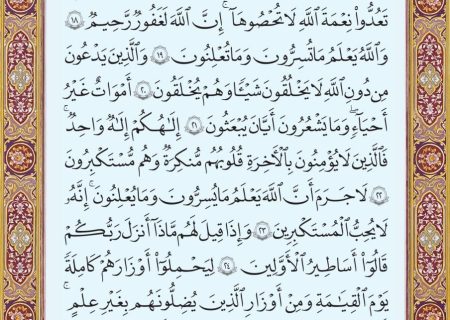 تَعُدُّوا۟ نِعْمَةَ ٱللَّهِ لَا تُحْصُوهَآ ۗ إِنَّ ٱللَّهَ لَغَفُورٌ رَّحِيمٌ ١٨
وَٱللَّهُ يَعْلَمُ مَا تُسِرُّونَ وَمَا تُعْلِنُونَ ١٩ وَٱلَّذِينَ يَدْعُونَ
مِن دُونِ ٱللَّهِ لَا يَخْلُقُونَ شَيْـًٔا وَهُمْ يُخْلَقُونَ ٢٠ أَمْوَٰتٌ غَيْرُ
أَحْيَآءٍ ۖ وَمَا يَشْعُرُونَ أَيَّانَ يُبْعَثُونَ ٢١ إِلَـٰهُكُمْ إِلَـٰهٌ وَٰحِدٌ ۚ
فَٱلَّذِينَ لَا يُؤْمِنُونَ بِٱلْـَٔاخِرَةِ قُلُوبُهُم مُّنكِرَةٌ وَهُم مُّسْتَكْبِرُونَ
٢٢ لَا جَرَمَ أَنَّ ٱللَّهَ يَعْلَمُ مَا يُسِرُّونَ وَمَا يُعْلِنُونَ ۚ إِنَّهُۥ
لَا يُحِبُّ ٱلْمُسْتَكْبِرِينَ ٢٣ وَإِذَا قِيلَ لَهُم مَّاذَآ أَنزَلَ رَبُّكُمْ ۙ
قَالُوٓا۟ أَسَـٰطِيرُ ٱلْأَوَّلِينَ ٢٤ لِيَحْمِلُوٓا۟ أَوْزَارَهُمْ كَامِلَةً
يَوْمَ ٱلْقِيَـٰمَةِ ۙ وَمِنْ أَوْزَارِ ٱلَّذِينَ يُضِلُّونَهُم بِغَيْرِ عِلْمٍ ۗ